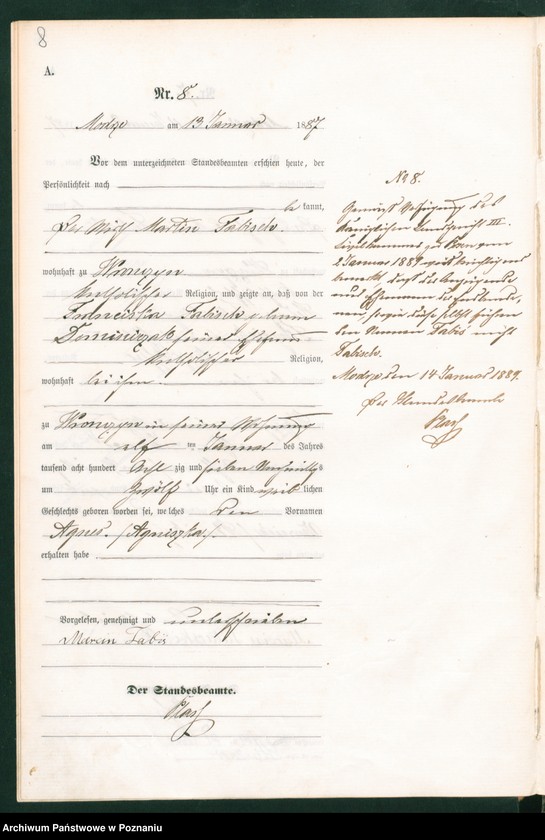 8
A.
Nr. 8.
Modze am 13 Januar 1887
Vor dem unterzeichneten Standesbeamten erschien heute, der
Persönlichkeit nach
be kannt,
der Wirth Martin Fabisch
wohnhaft zu Wronczyn
katholischer Religion, und zeigte an, daß von der
Franciska Fabisch geborenen
Dominiczak seiner Ehefrau
katholischer Religion,
wohnhaft bei ihm
zu Wronczyn in seiner Wohnung
am elf ten Januar des Jahres
tausend acht hundert acht zig und sieben Nachmittags
um zwölf Uhr ein Kind weib lichen
Geschlechts geboren worden sei, welches den Vornamen
Agnes. /Agniszka/.
erhalten habe
Vorgelesen, genehmigt und unterschrieben
Marcin Fabiś
Der Standesbeamte.
No 8.
Gemäß Verfügung des
Königlichen Landgericht III.
Civilkammer zu Posen vom
2 Januar 1889 wird berichtigend
bemerkt, daß der Anzeigende
und Ehemann der
den Namen Fabiś nicht
Fabisch.
Modze den 14 Januar 1889.
Der Standesbeamte
Archiwum Państwowe w Poznaniu